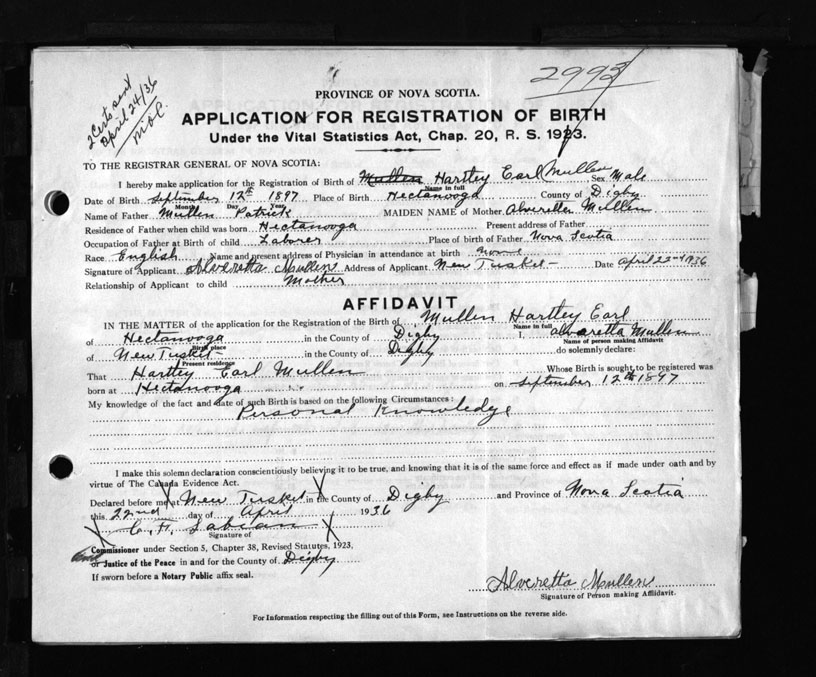 2 Certs sent
April 24/36
M.O.C.
2993
PROVINCE OF NOVA SCOTIA.
APPLICATION FOR REGISTRATION OF BIRTH
Under the Vital Statistics Act, Chap. 20, R. S. 1923.
TO THE REGISTRAR GENERAL OF NOVA SCOTIA:
I hereby make application for the Registration of Birth of Mullen Hartley Earl Mullen Sex Male
Name in full
Date of Birth September 12th 1897 Place of Birth Hectanooga County of Digby
Month Day Year
Name of Father Mullen Patrick MAIDEN NAME of Mother Alveretta Mulllen
Residence of Father when child was born Hectanooga Present address of Father
Occupation of Father at Birth of child Laborer Place of birth of Father Nova Scotia
Race English Name and present address of Physician in attendance at birth None
Signature of Applicant Alveretta Mullen Address of Applicant New Tusket Date April 22nd 1936
Relationship of Applicant to child Mother
AFFIDAVIT
IN THE MATTER of the application for the Registration of the Birth of Mullen Hartley Earl
Name in full
of Hectanooga in the County of Digby I, alvaretta Mullen
Birth place Name of person making Affidavit
of New Tusket in the County of Digby do solemnly declare:
Present residence
That Hartley Earl Mullen Whose Birth is sought to be registered was
born at Hectanooga on September 12th 1897
My knowledge of the fact and date of such Birth is based on the following Circumstances:
Personal Knowledge
I make this solemn declaration conscientiously believing it to be true, and knowing that it is of the same force and effect as if made under oath and by
virtue of The Canada Evidence Act.
Declared before me at New Tusket in the County of Digby and Province of Nova Scotia
this 22nd day of April 1936
C. F. Sabian
Signature of
Commissioner under Section 5, Chapter 38, Revised Statutes, 1923,
or Justice of the Peace in and for the County of Digby
If sworn before a Notary Public affix seal.
Alveretta Mullen
Signature of Person making Affidavit.
For Information respecting the filling out of this Form, see Instructions on the reverse side.